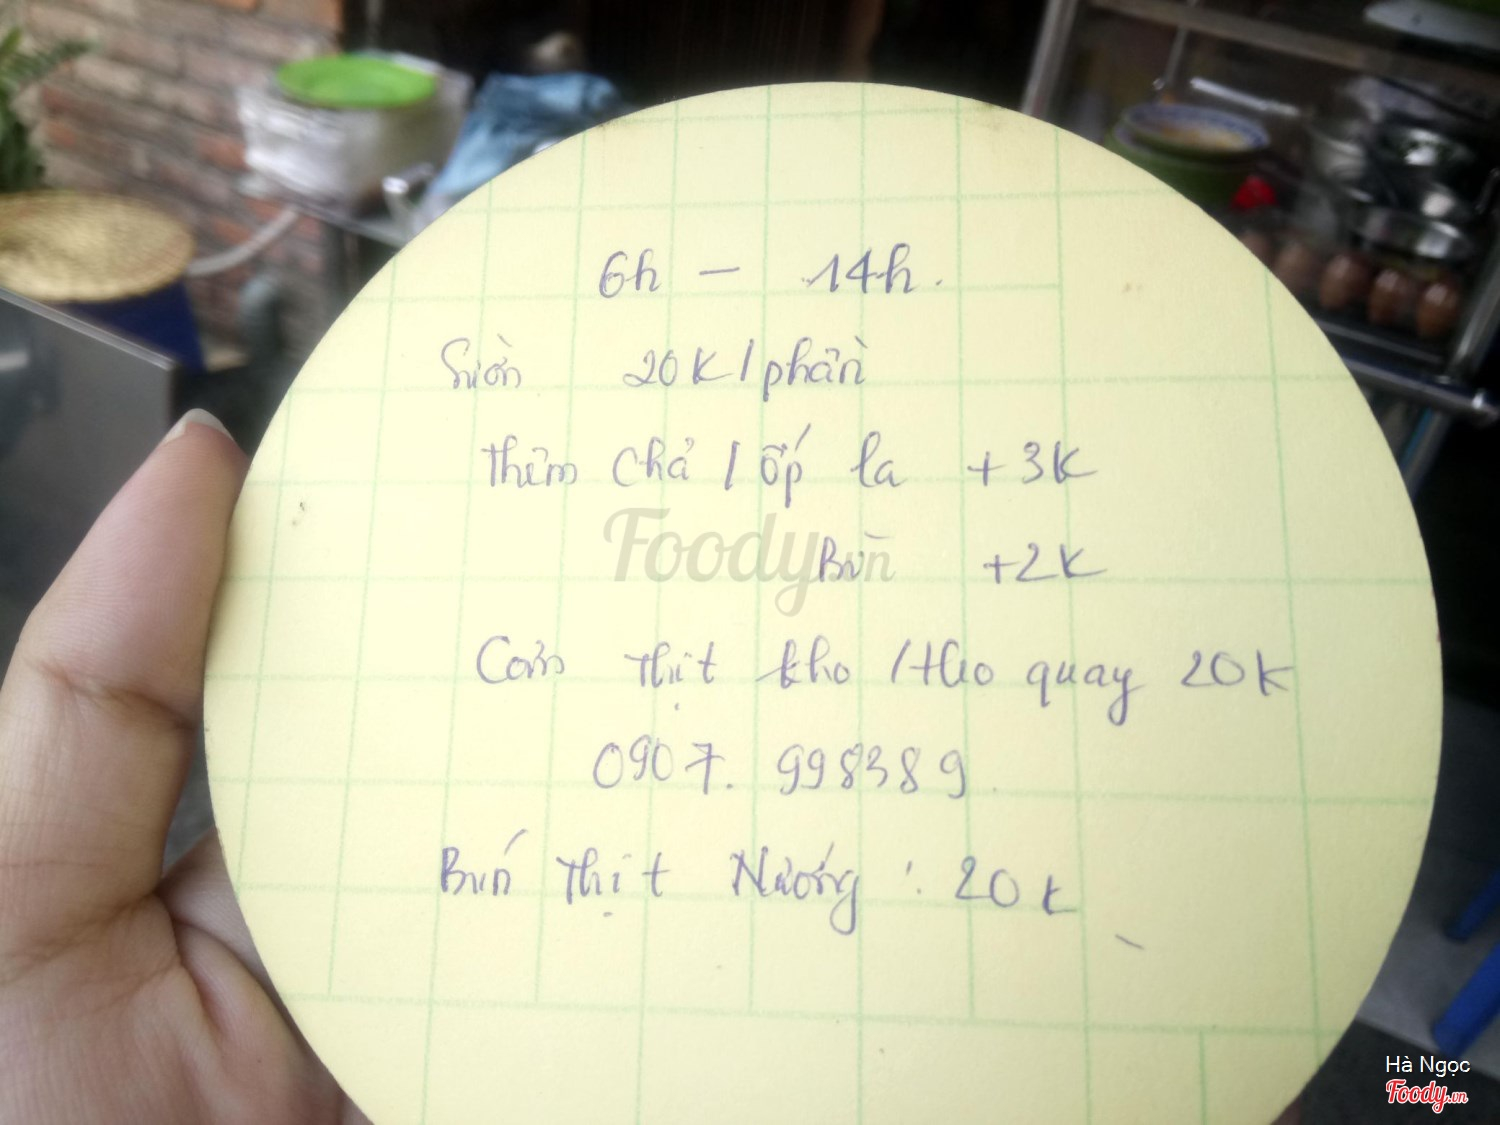 6h - 14h.
Sườn 20K/phần
Thêm chả / ốp la +3K
Bì +2K
Cơm thịt kho / Heo quay 20K
0907. 998389
Bún Thịt Nướng : 20K
Foody.vn
Hà Ngọc
Foody.vn